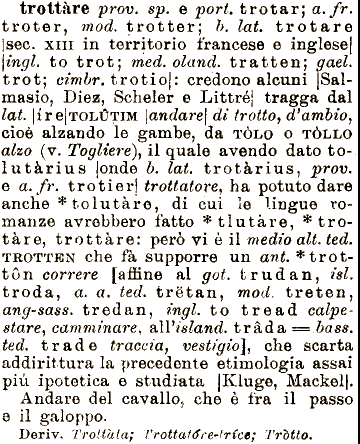 trottàre prov. sp. e port. trotar; a. fr.
troter, mod. trotter; b. lat. trotare
[sec. XIII in territorio francese e inglese]
[ingl. to trot; med. oland. tratten; gael.
trot; cimbr. trotio]: credono alcuni [Sal-
masio, Diez, Scheler e Littré] tragga dal
lat. [ire] TOLÛTIM [andare] di trotto, d'ambio,
cioè alzando le gambe, da TÒLO o TÒLLO
alzo (v. Togliere), il quale avendo dato to-
lutàrius [onde b. lat. trotàrius, prov.
e a. fr. trotier] trottatore, ha potuto dare
anche * tolutàre, di cui le lingue ro-
manze avrebbero fatto * tlutàre, * tro-
tàre, trottàre: però vi è il medio alt. ted.
TROTTEN che fà supporre un ant. * trot-
tôn correre [affine al got. trudan, isl.
troda, a. a. ted. trëtan, mod. treten,
ang-sass. tredan, ingl. to tread calpe-
stare, camminare, all'island. tràda = bass.
ted. trade traccia, vestigio], che scarta
addirittura la precedente etimologia assai
piú ipotetica e studiata [Kluge, Mackel].
Andare del cavallo, che è fra il passo
e il galoppo.
Deriv. Trottàta; Trottatóre-tríce; Tròtto.